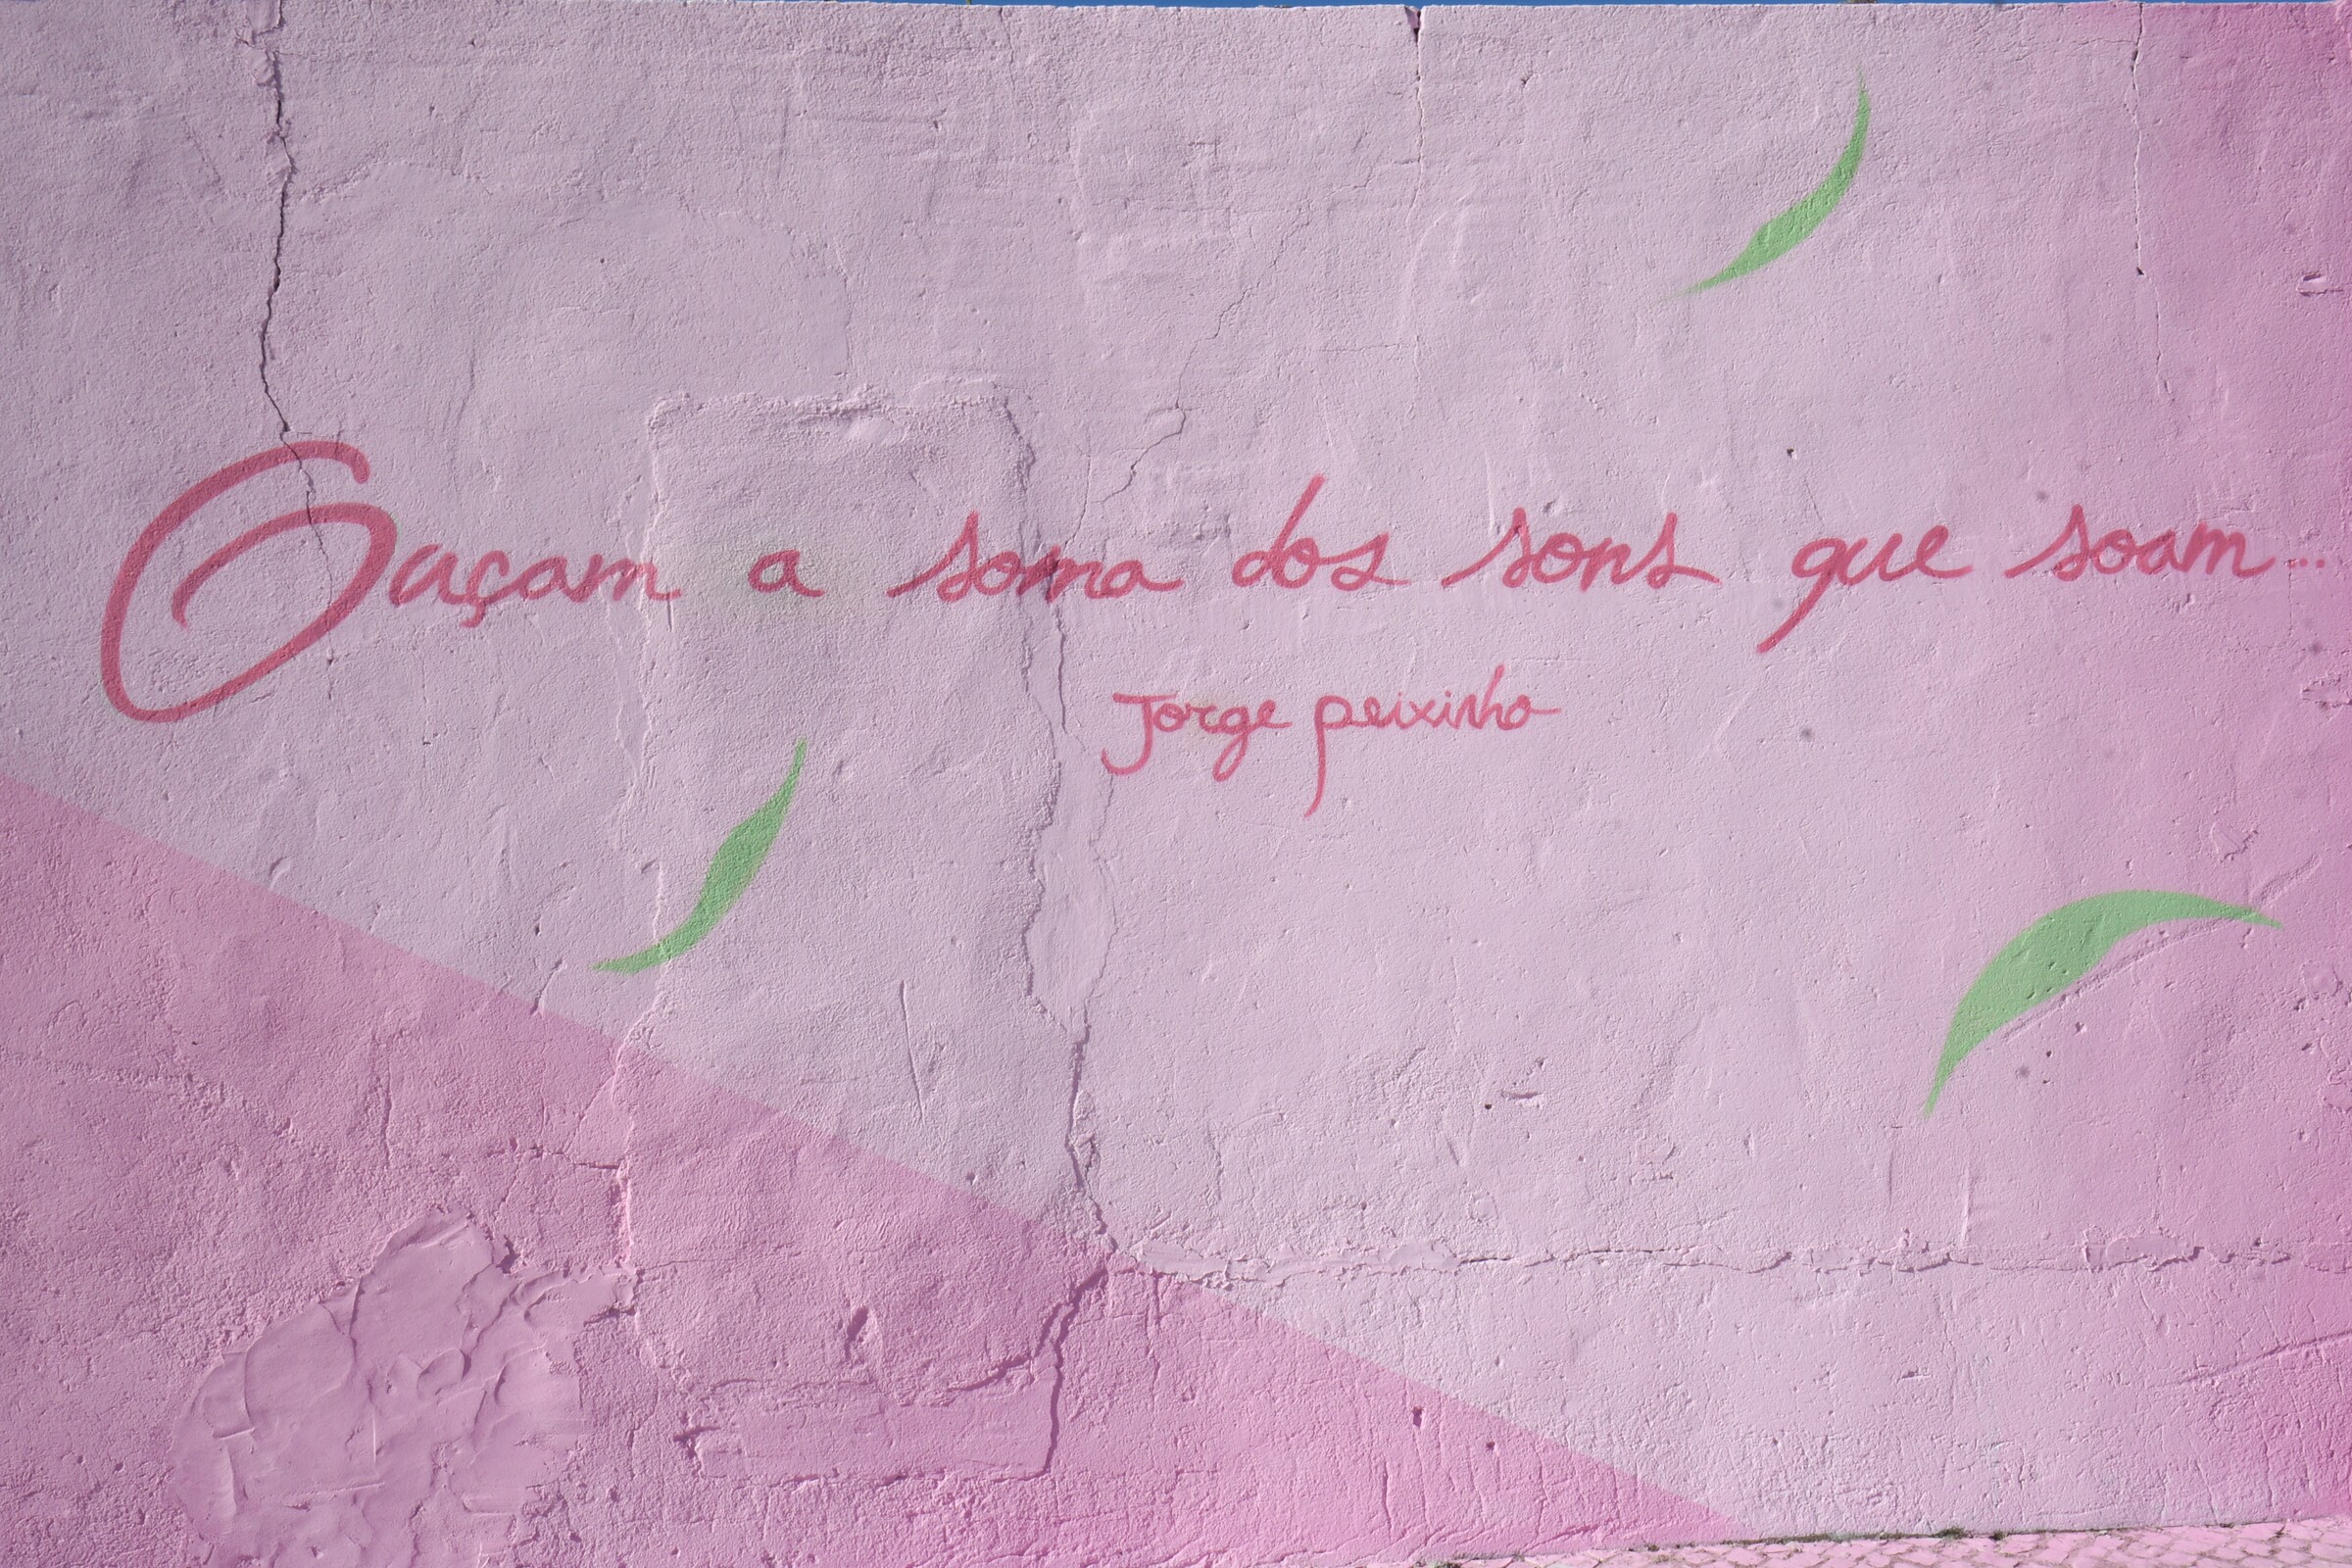 Ouçam a soma dos sons que soam...
Jorge peixinho